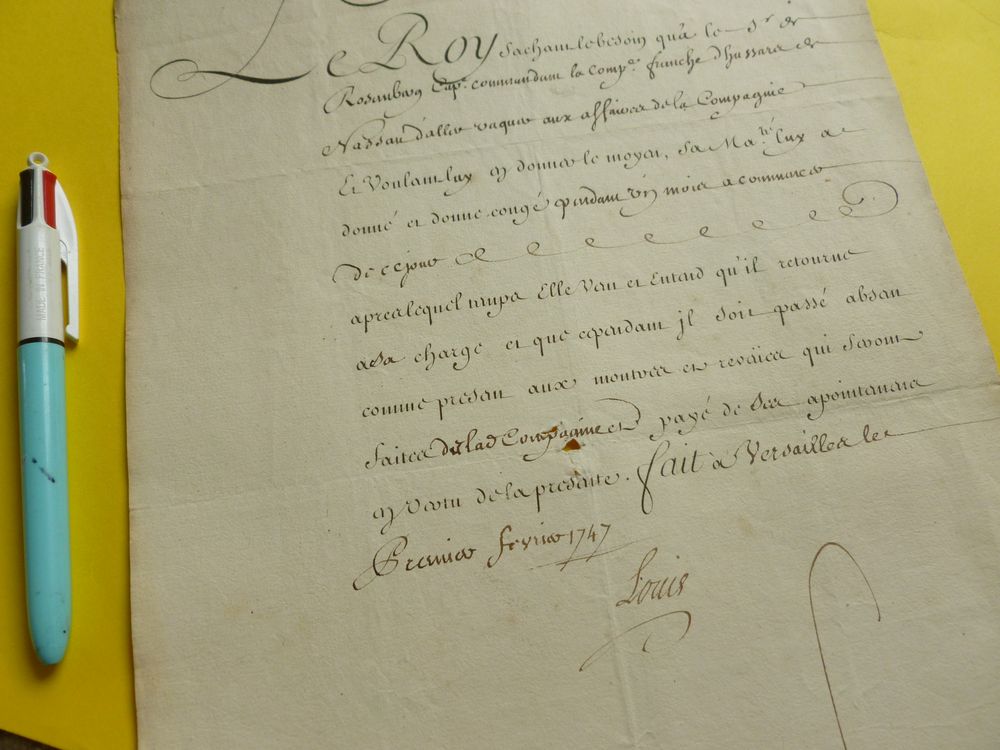 Le Roy sachant le besoin qu'a le Sr de
Rosenberg Cape. commandant la Compe. franche d'hussars de
Nassau d'aller vaquer aux affaires de la Compagnie
Et Voulant luy en donner le moyen, Sa Mate. luy a
donné et donne congé pendant Un mois a commencer
de ce jour
apres lequel temps Elle Veut et Entend qu'il retourne
a sa charge et que cependant il soit passé absent
comme present aux montres et reveües qui seront
faites de lad Compagnie et payé de ses apointemens
en Vertu de la presente. fait a Versailles le
Premier fevrier 1747
Louis
MADE IN FRANCE